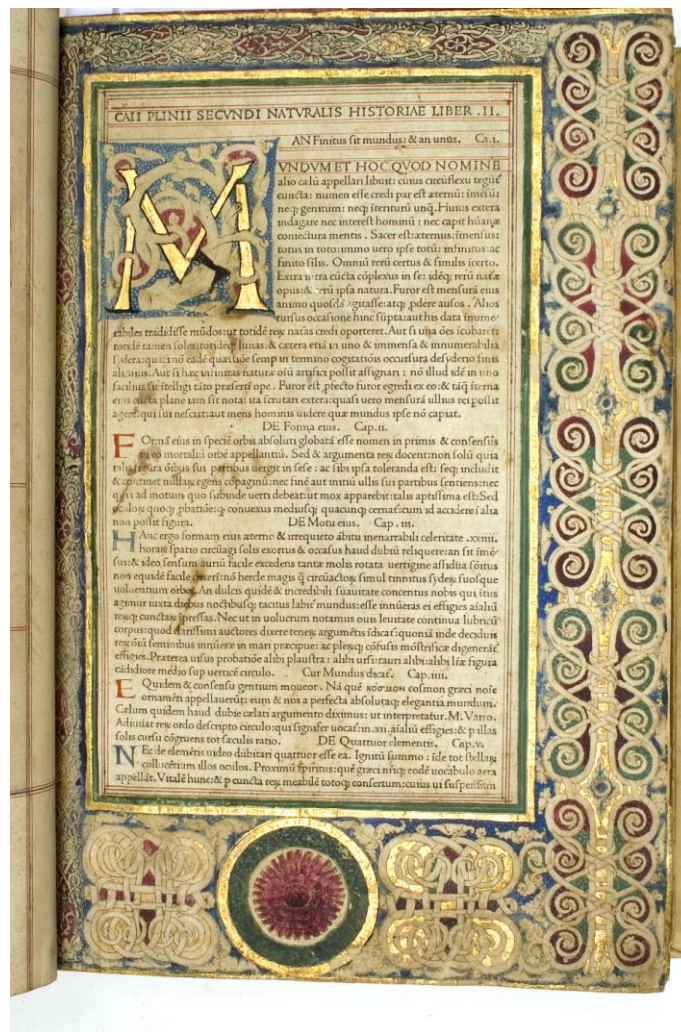 CAII PLINII SECVNDI NATVRALIS HISTORIAE LIBER .II.
AN Finitus sit mundus: & an unus. Ca.i.
MVNDVM ET HOC QVOD NOMINE
alio cælū appellari libuit: cuius circūflexu tegūt̄
cuncta: numen esse credi par est æternū: īmēsū:
neq; genitum: neq; iteriturū unq̄. Huius extera
indagare nec interest hominū: nec capit hūanæ
coniectura mentis. Sacer est: æternus: īmensus:
totus in toto: immo uero ipse totū: infinitus: ac
finito silis. Omniū rerū certus & similis īcerto.
Extra intra cūcta cōplexus in se: idēq; rerū naturæ
opus: & rerū ipsa natura. Furor est mensurā eius
animo quosdā agitasse: atq; prodere ausos. Alios
rursus occasione hinc sūpta: aut his data īnume
rabiles tradidisse mūdos: ut totidē rerū naturas credi oporteret. Aut si una oēs īcubaret:
totidē tamen soles: totidēq; lunas: & cætera etiā in uno & immensa & innumerabilia
sydera: quasi nō eadē quæstiōe semp in termino cogitatiōis occursura desyderio finis
alicuius. Aut si hæc infinitas naturæ oīū artifici possit assignari: nō illud idē in uno
facilius sit ītelligi tāto præsertī ope. Furor est pfecto furor egredi ex eo: & tāq̄ īterna
eius cūcta plane iam sīt nota: ita scrutari extera: quasi uero mensurā ullius rei possit
agere: qui sui nesciat: aut mens hominis uidere quæ mundus ipse nō capiat.
DE Forma eius. Cap.ii.
FOrmā eius in speciē orbis absoluti globatā esse nomen in primis & consensus
in eo mortaliū orbē appellantiū. Sed & argumenta rerū docent: non solū quia
talis figura oībus sui partibus uergit in sese: ac sibi ipsa toleranda est: seq; includit
& continet nullarū egens copaginū: nec finē aut initiū ullis sui partibus sentiens: nec
quia ad motum quo subinde uerti debeat: ut mox apparebit: talis aptissima est: Sed
oculorū quoq; pbatiōe: q; conuexus mediusq; quacunq; cernat̄: cum id accidere ī alia
non possit figura. DE Motu eius. Cap. iii.
HAnc ergo formam eius æterno & irrequieto ābitu inenarrabili celeritate .xxiiii.
horarū spatio circūagi solis exortus & occasus haud dubiū reliquere: an sit īmē
sus: & ideo sensum auriū facile excedens tantæ molis rotatæ uertigine assidua sōitus
non equidē facile dixerī: nō hercle magis q̄ circūactorū simul tinnitus syderū suosque
uoluentium orbes. An dulcis quidē & incredibili suauitate concentus nobis qui ītus
agimur iuxta diebus noctibusq; tacitus labit̄ mundus: esse innūeras ei effigies aīaliū
rerūq; cunctarū īpressas. Nec ut in uolucrum notamus ouis leuitate continua lubricū
corpus: quod clarissimi auctores dixere teneris argumētis īdicat̄: quoniā inde deciduis
rerū oīū seminibus innūeræ in mari præcipue: ac plerūq; cōfusis mōstrificæ digenerāt̄
effigies. Præterea uisus probatiōe alibi plaustra: alibi ursi: tauri alibi: alibi lr̄æ figura
cādidiore medio sup uerticē circulo. Cur Mundus dicat̄. Cap. iiii.
EQuidem & consensu gentium moueor. Nā quē κόσμον cosmon græci noīe
ornamēti appellauerūt: eum & nos a perfecta absolutaq; elegantia mundum.
Cælum quidem haud dubie cælati argumento diximus: ut interpretatur. M. Varro.
Adiuuat rerū ordo descripto circulo: qui signifer uocat̄: in .xii. aīaliū effigies: & p illas
solis cursu cōgruens tot sæculis ratio. DE Quattuor elementis. Cap. v.
NEc de elemētis uideo dubitari quattuor esse ea. Ignitū summo: īde tot stellarū
collucētium illos oculos. Proximū spiritus: quē græci nr̄iq; eodē uocabulo aera
appellāt. Vitalē hunc: & p cuncta rerū meabilē totoq; consertum: cuius ui suspensam